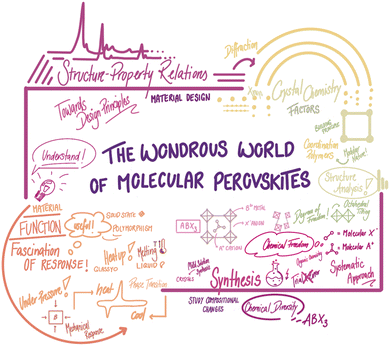 Structure-Property Relations
MATERIAL DESIGN
Towards
Design Principles
Diffraction
X-rays
Crystal Chemistry
FACTORS
BUILDING PRINCIPLES
Coordination
Polymers
Structure
Analysis!
Understand!
THE WONDROUS WORLD
OF MOLECULAR PEROVSKITES
MATERIAL
FUNCTION
useful!
SOLID STATE
POLYMORPHISM
Fascination
OF RESPONSE!
Heat up!
Melting
LIQUID
Under Pressure!
Mechanical
Response
heat
cool
Phase Transition
ABX₃
B-METAL
X-ANION
A-CATION
Degree of Freedom!
Octahedral
Tilting
Chemical Freedom
= Molecular X⁻
= Molecular A⁺
Synthesis
CRYSTALS
Systematic
Approach
STUDY COMPOSITIONAL
CHANGES
Chemical Diversity
ABX₃